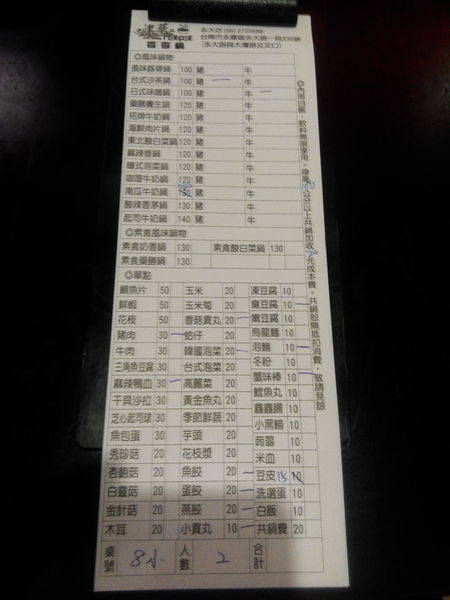 建華
Hotpot
香香鍋
永大店 (06) 2729888
台南市永康區永大路一段330號
(永大路與大灣路交叉口)
◎風味鍋物
風味豚骨鍋 100 豬 牛
台式沙茶鍋 100 豬 一 牛
日式味噌鍋 100 豬 牛 一
藥膳養生鍋 120 豬 牛
招牌牛奶鍋 120 豬 牛
海鮮肉片鍋 120 豬 牛
東北酸白菜鍋 120 豬 牛
麻辣香鍋 120 豬 牛
韓式泡菜鍋 120 豬 牛
咖哩牛奶鍋 120 豬 牛
南瓜牛奶鍋 豬 牛
酸辣香茅鍋 130 豬 牛
起司牛奶鍋 140 豬 牛
◎素食風味鍋物
素食奶香鍋 130 素食酸白菜鍋 130
素食藥膳鍋 130
◎單點
鯛魚片 50 玉米 20 凍豆腐 10
鮮蝦 50 玉米筍 20 臭豆腐 10
花枝 50 香菇貢丸 20 嫩豆腐 10
豬肉 30 蛤仔 20 烏龍麵 10
牛肉 30 韓國泡菜 20 泡麵 10
三角魚豆腐 30 台式泡菜 20 冬粉 10
麻辣鴨血 30 高麗菜 20 蟹味棒 10
干貝沙拉 30 黃金魚丸 20 鱈魚丸 10
芝心起司球 30 季節鮮蔬 20 鑫鑫腸 10
魚包蛋 30 芋頭 20 小黑輪 10
秀珍菇 20 花枝漿 20 蒟蒻 10
杏鮑菇 20 魚餃 20 米血 10
白靈菇 20 蛋餃 20 豆皮 15 10
金針菇 20 燕餃 20 洗選蛋 10
木耳 20 小貢丸 10 白飯 10
共鍋費 20
桌號 8小 人數 2 合計